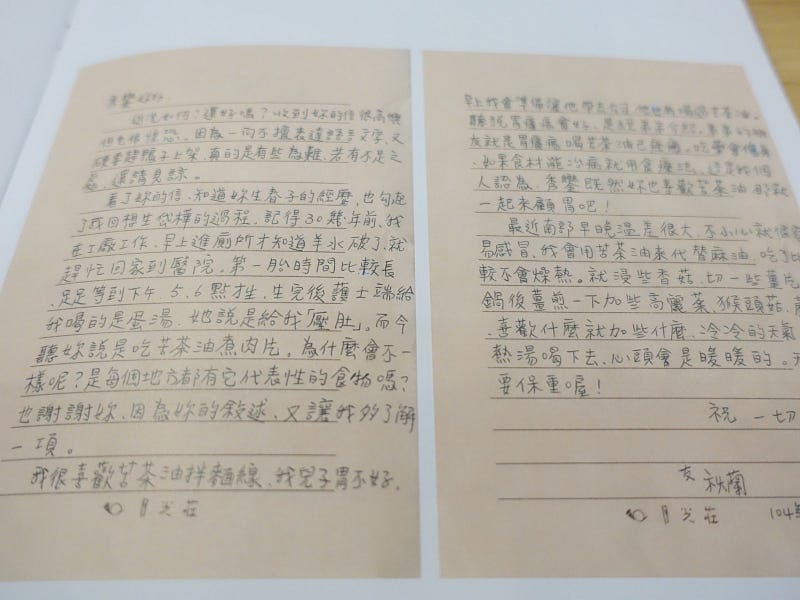 秀鑾好好.
近況如何？還好嗎？收到妳的信很高興
但也很惶恐、因為一向不擅表達語言文字、又
硬拿趕鴨子上架、真的是有些為難、若有不足之
處、還請見諒。
看了妳的信、知道妳生春子的經歷、也勾起
了我回想生岱樺的過程、記得30幾年前、我
在工廠工作、早上進廁所才知道羊水破了、就
趕忙回家到醫院、第一胎時間比較長
、足足等到下午.5.6點才生、生完後護士端給
我喝的是蛋湯、她說是給我「壓肚」。而今
聽妳說是吃苦茶油煮肉片。為什麼會不一
樣呢？是每個地方都有它代表性的食物嗎？
也謝謝妳、因為妳的敘述、又讓我多了解
一項。
我很喜歡苦茶油拌麵線、我兒子胃不好、
月光莊
早上我會準備讓他帶去公司、他也有喝過苦茶油。
聽說胃痛病會好、是
友就是胃痛病喝苦茶油已
、如果食材能治病就用食療法、這是我個
人認為、秀鑾既然妳也喜歡苦茶油那就
一起來顧胃吧！
最近南部早晚溫差很大、不小心就很容
易感冒、我會用苦茶油來代替麻油、吃了比
較不會燥熱。就浸些香菇、切一些薑片
鍋後薑煎一下加些高麗菜、猴頭菇、
、喜歡什麼就加些什麼、冷冷的天氣
熱湯喝下去、心頭會是暖暖的。
要保重喔！
祝 一切
友 秋蘭
月光莊
104年